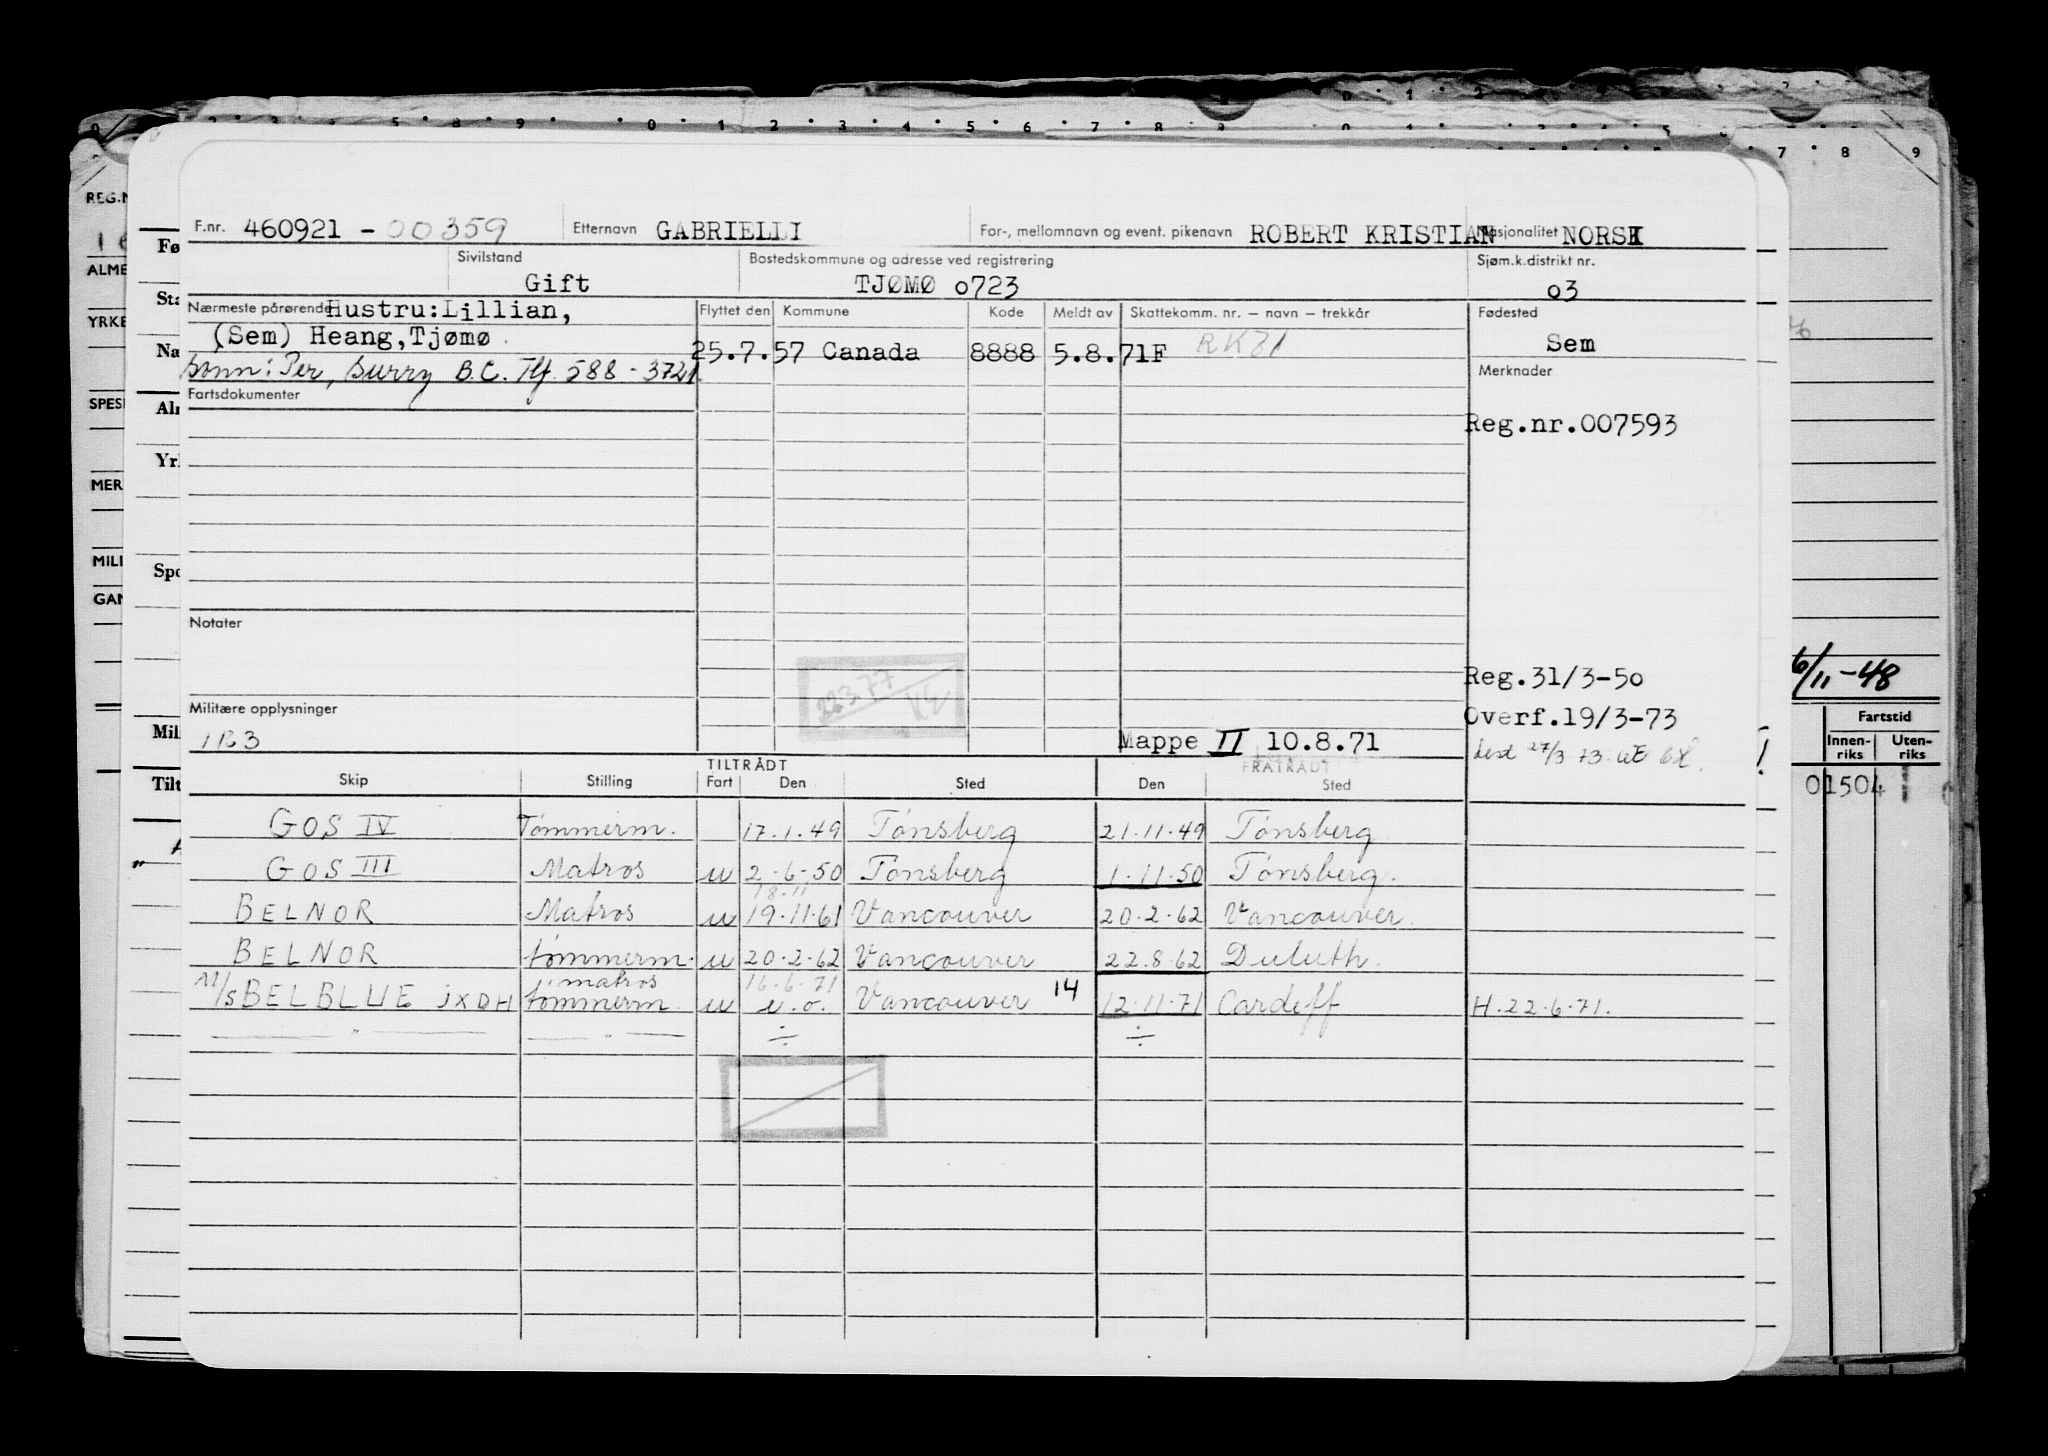 F.nr. 460921 - 00359 Etternavn GABRIELLI For-, mellomnavn og event. pikenavn ROBERT KRISTIAN Nasjonalitet NORSK
Sivilstand Gift Bostedskommune og adresse ved registrering TJØMØ 0723 Sjøm.k.distrikt nr. 03
Nærmeste pårørende Hustru:Lillian, Flyttet den Kommune Kode Meldt av Skattekomm. nr. – navn – trekkår Fødested
(Sem) Heang,Tjømø Sem
25.7.57 Canada 8888 5.8.71F RK81
Sønn: Per, Surry B.C. Tlf. 588 - 3721 Merknader
Fartsdokumenter
Reg.nr.007593
Notater
Reg.31/3-50
22377
Militære opplysninger Overf.19/3-73
1B3 Mappe II 10.8.71 27/3 73
TILTRÅDT FRATRÅDT
Skip Stilling Fart Den Sted Den Sted
GOS IV Tømmerm. 17.1.49 Tønsberg 21.11.49 Tønsberg
GOS III Matros u 2-6-50 Tønsberg 1.11.50 Tønsberg.
18.11
BELNOR Matros u 19.11.61 Vancouver 20.2.62 Vancouver.
BELNOR tømmerm. u 20.2.62 Vancouver 22.8.62 Duluth.
matros 16.6.71
M/S BELBLUE JXDH tømmerm u e.o. Vancouver 14 12.11.71 Cardiff H.22.6.71.
" " ÷ ÷
REG.N
ALME
YRKE
SPESI
MER
MILI
GAN
Fø
Sta
Na
Aln
Yrl
Spo
Mil
Tilt
6/11-48
Fartstid
Innen-riks Uten-riks
01504